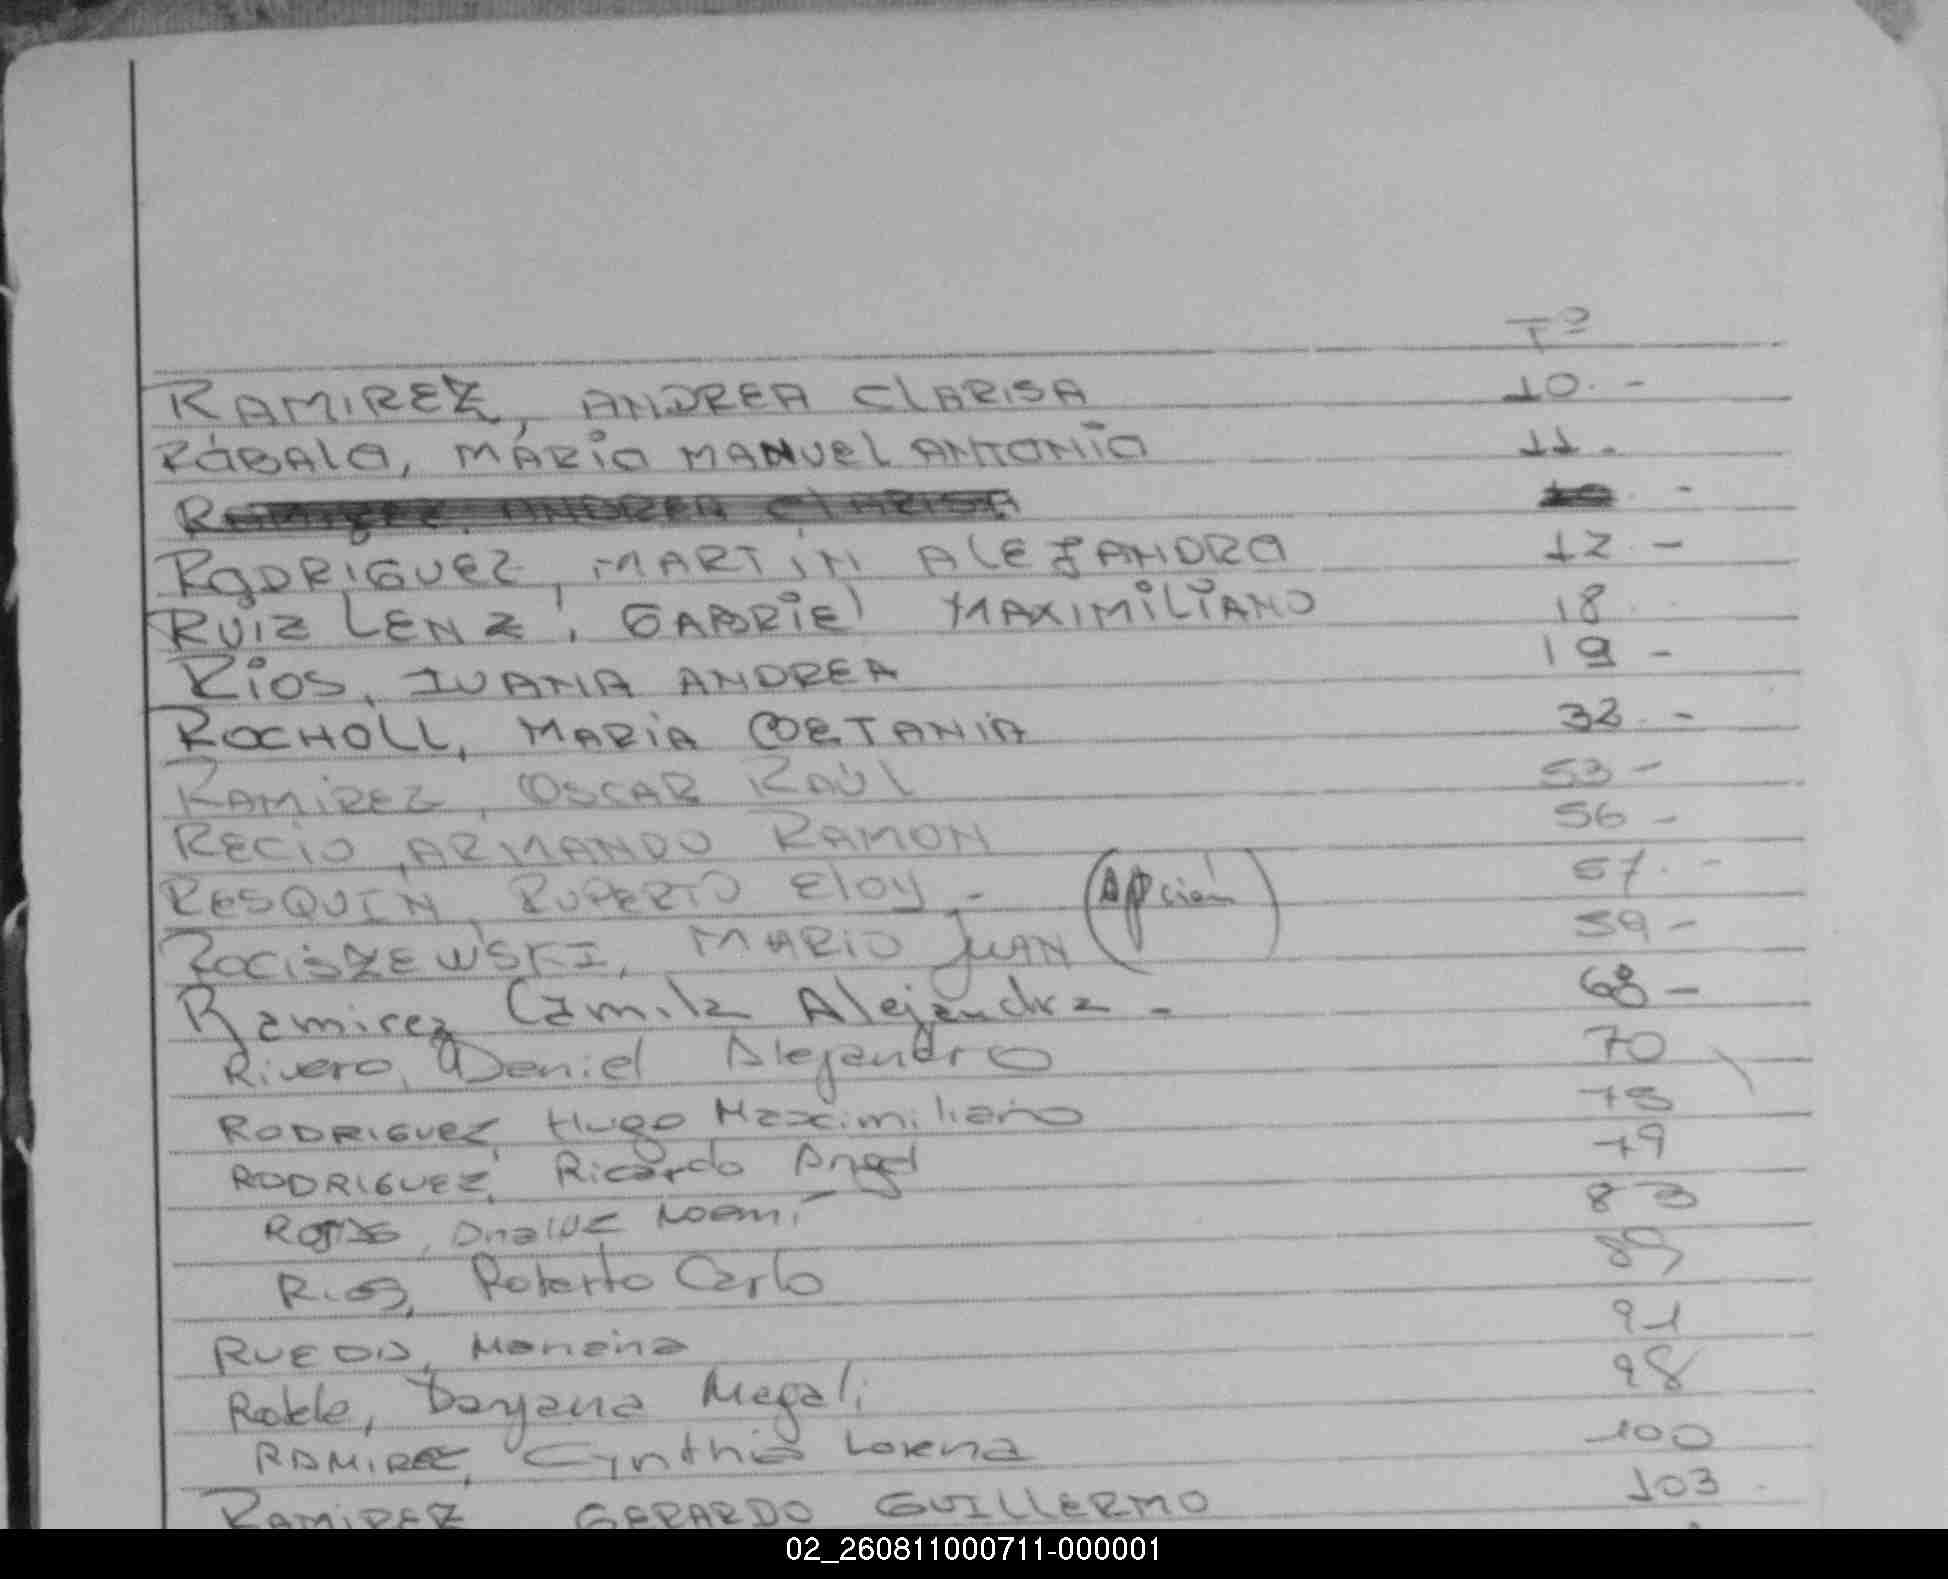 Tº
RAMIREZ, ANDREA CLARISA 10. -
RÁBALO, MÁRIO MANUEL ANTONIO 11.
RAMIREZ, ANDREA CLARISA 10. -
RODRIGUEZ, MARTÍN ALEJANDRO 12. -
RUIZ LENZ, GABRIEL MAXIMILIANO 18.
RÍOS, IVANA ANDREA 19 -
ROCHOLL, MARÍA BETANIA 32. -
RAMÍREZ, OSCAR RAÚL 53 -
RECIO, ARMANDO RAMON 56 -
RESQUÍN, RUPERTO ELOY - 57. -
ROCISZEWSKI, MARIO JUAN (Opción) 59 -
Ramirez Camila Alejandra - 68 -
Rivero, Daniel Alejandro 70
RODRIGUEZ, Hugo Maximiliano 78
RODRIGUEZ, Ricardo Angel 79
ROJAS, Noemí 83
Rios, Roberto Carlo 89
RUEDA, Mariana 91
Roble, Dayana Magali 98
RAMIREZ, Cynthia Lorena 100
RAMIREZ GERARDO GUILLERMO 103
02_260811000711-000001